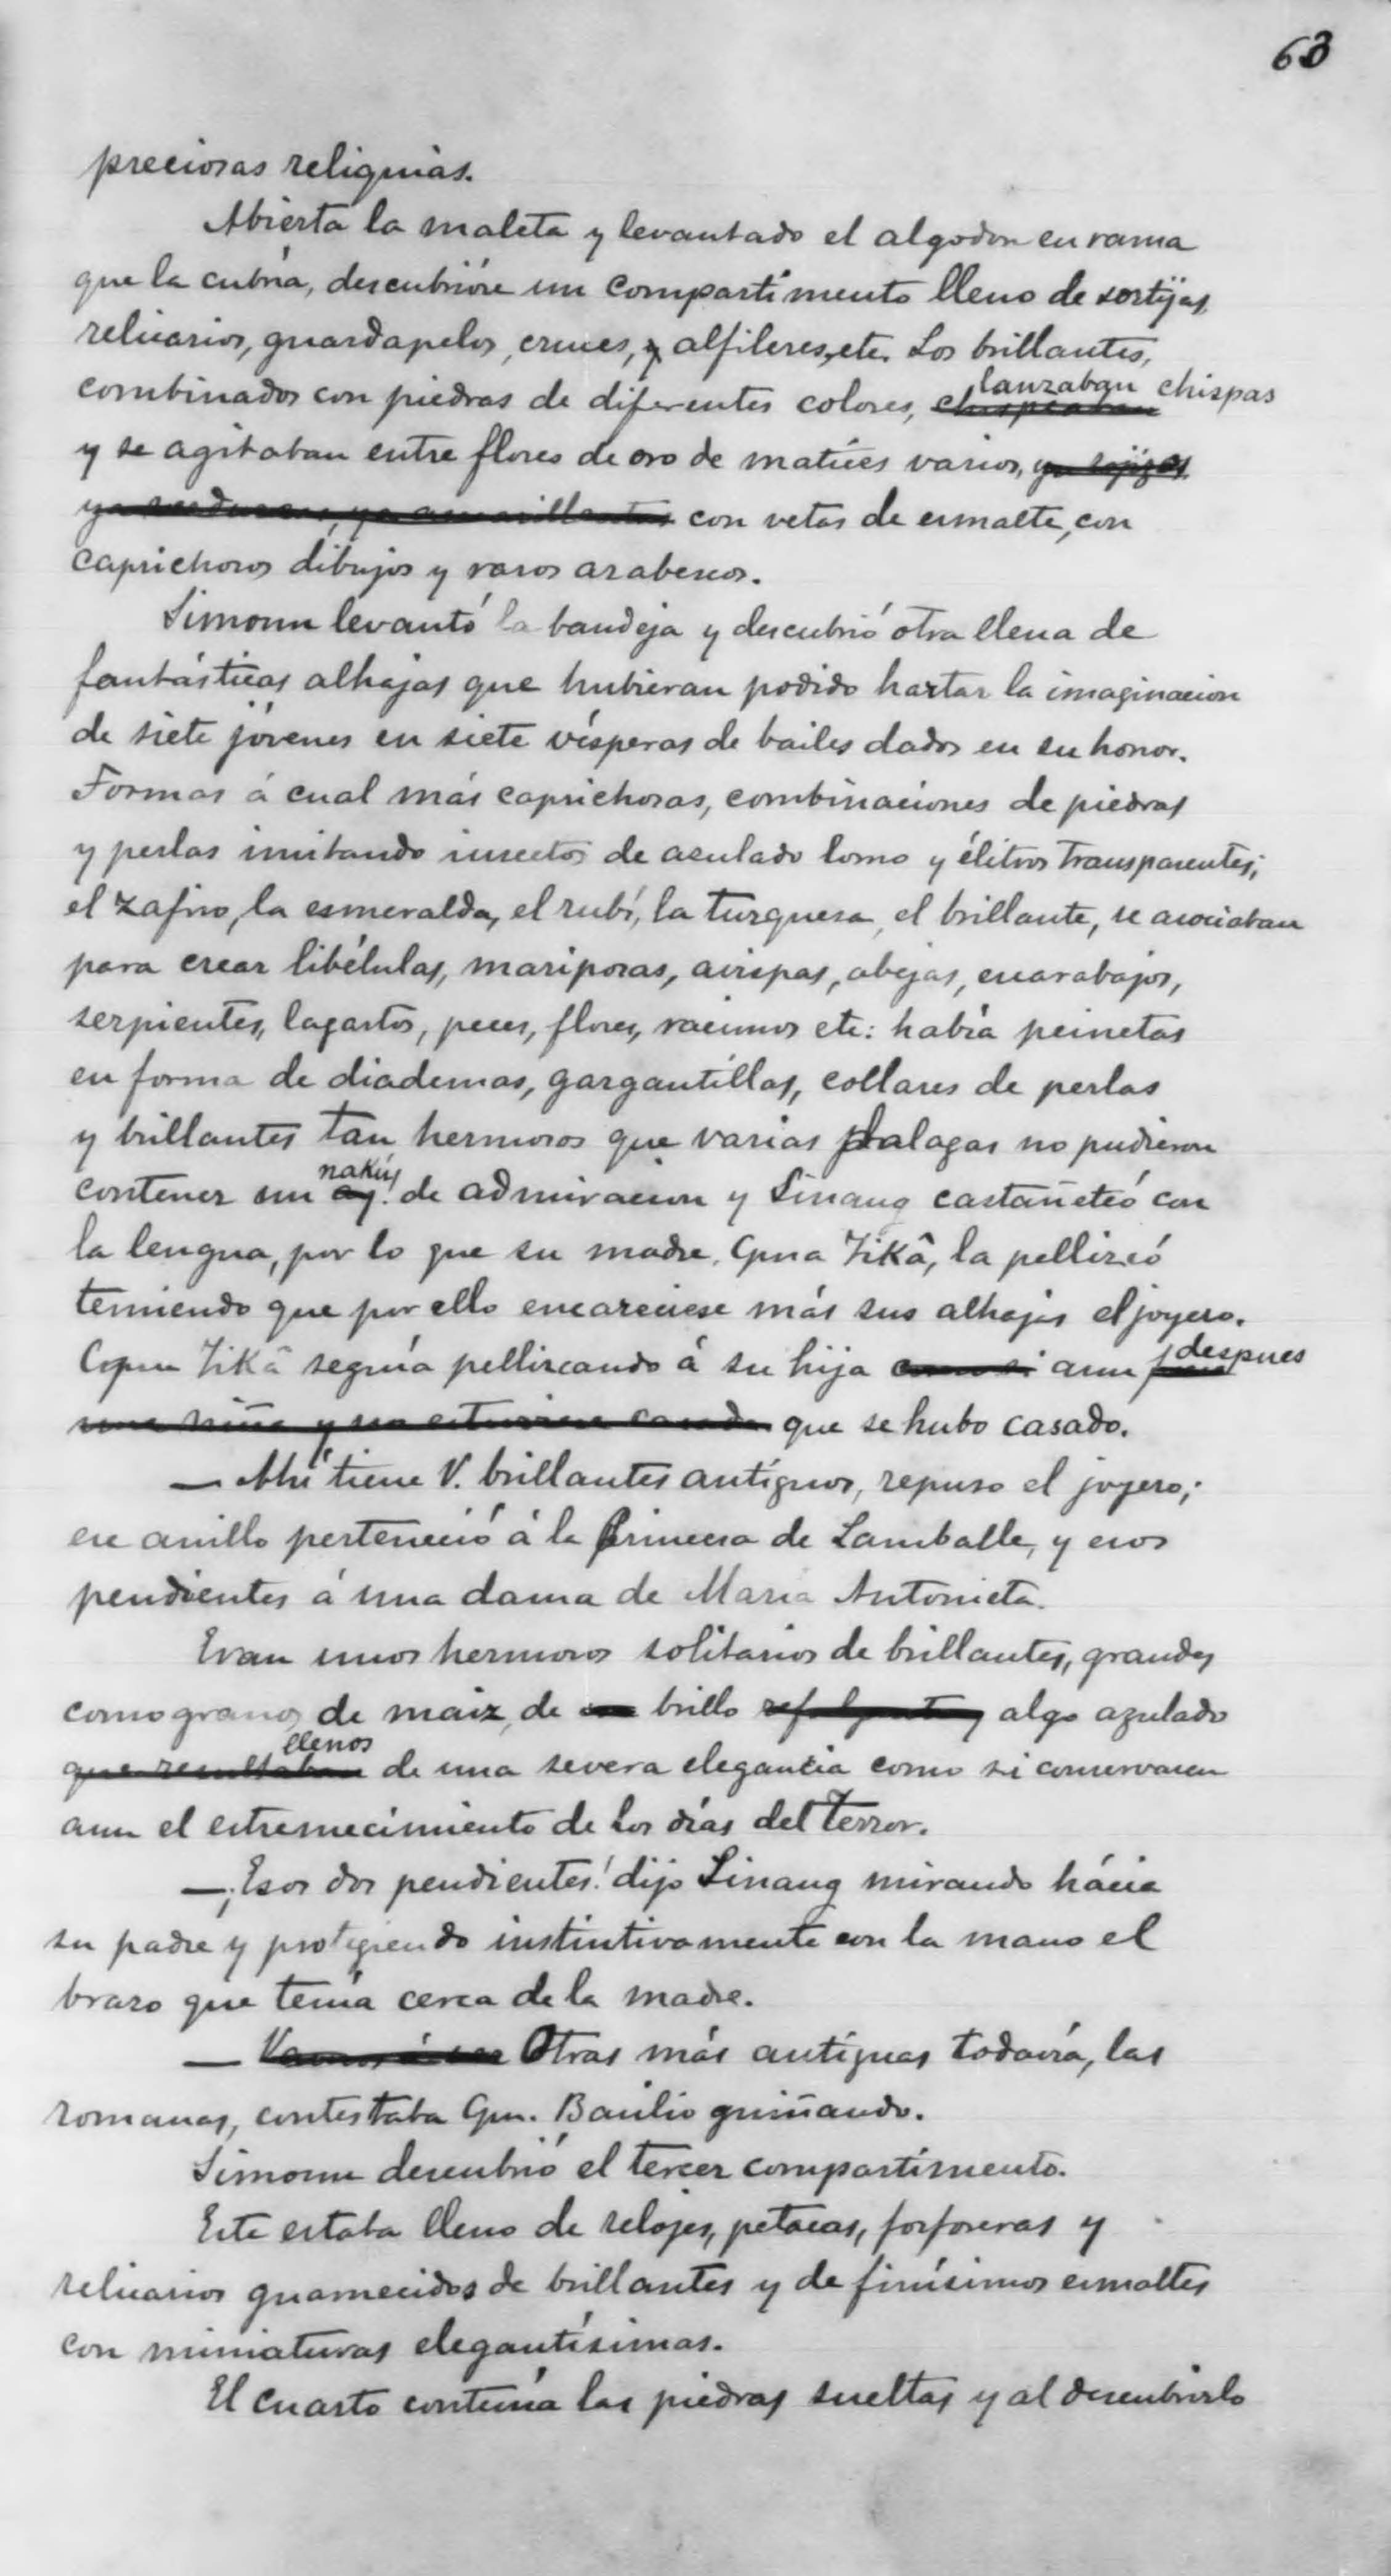 63
preciosas reliquias.
Abierta la maleta y levantado el algodon en rama
que la cubría, descubrióse un compartimento lleno de sortijas,
relicarios, guardapelos, cruces, y alfileres, etc. Los brillantes,
combinados con piedras de diferentes colores, chispeaban lanzaban chispas
y se agitaban entre flores de oro de matices varios, ya rojizos
ya verduscos, ya amarillentos con vetas de esmalte, con
caprichosos dibujos y raros arabescos.
Simoun levantó la bandeja y descubrió otra llena de
fantásticas alhajas que hubieran podido hartar la imaginacion
de siete jóvenes en siete vísperas de bailes dados en su honor.
Formas á cual más caprichosas, combinaciones de piedras
y perlas imitando insectos de azulado lomo y élitros transparentes;
el zafiro, la esmeralda, el rubí, la turquesa, el brillante, se asociaban
para crear libélulas, mariposas, avispas, abejas, escarabajos,
serpientes, lagartos, peces, flores, racimos etc: había peinetas
en forma de diademas, gargantillas, collares de perlas
y brillantes tan hermosos que varias dalagas no pudieron
contener un ay! nakú! de admiracion y Sinang castañeteó con
la lengua, por lo que su madre, Cpna Tikâ, la pellizcó
temiendo que por ello encareciese más sus alhajas el joyero.
Cpna Tikâ seguía pellizcando á su hija como si aun fuese despues
una niña y no estuviese casada que se hubo casado.
— Ahí tiene V. brillantes antíguos, repuso el joyero;
ese anillo perteneció á la Princesa de Lamballe, y esos
pendientes á una dama de María Antonieta.
Eran unos hermosos solitarios de brillantes, grandes
como granos de maiz, de brillo algo azulado
que resultaban llenos de una severa elegancia como si conservasen
aun el estremecimiento de los días del Terror.
— ¡Esos dos pendientes! dijo Sinang mirando hácia
su padre y protegiendo instintivamente con la mano el
brazo que tenía cerca de la madre.
— Vamos á ver Otras más antíguas todavía, las
romanas, contestaba Cpn. Basilio guiñando.
Simoun descubrió el tercer compartimento.
Este estaba lleno de relojes, petacas, fosforeras y
relicarios guarnecidos de brillantes y de finísimos esmaltes
con miniaturas elegantísimas.
El cuarto contenía las piedras sueltas y al descubrirlo